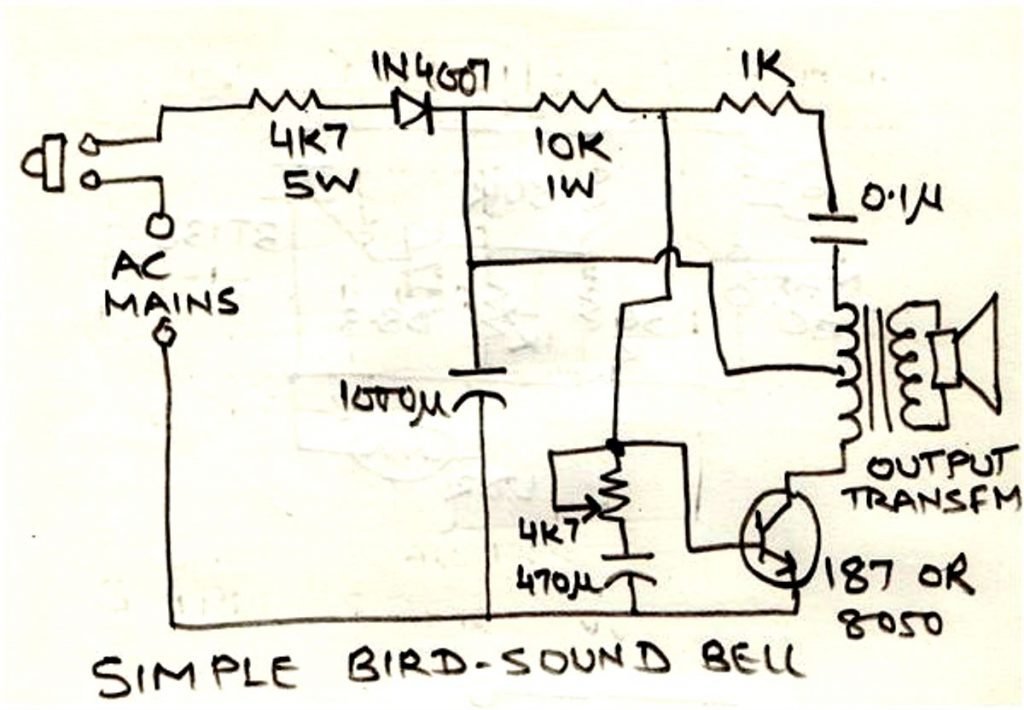 1N4007
1K
4K7
5W
10K
1W
0.1µ
AC
MAINS
1000µ
4K7
470µ
OUTPUT
TRANSFM
187 OR
8050
SIMPLE BIRD-SOUND BELL